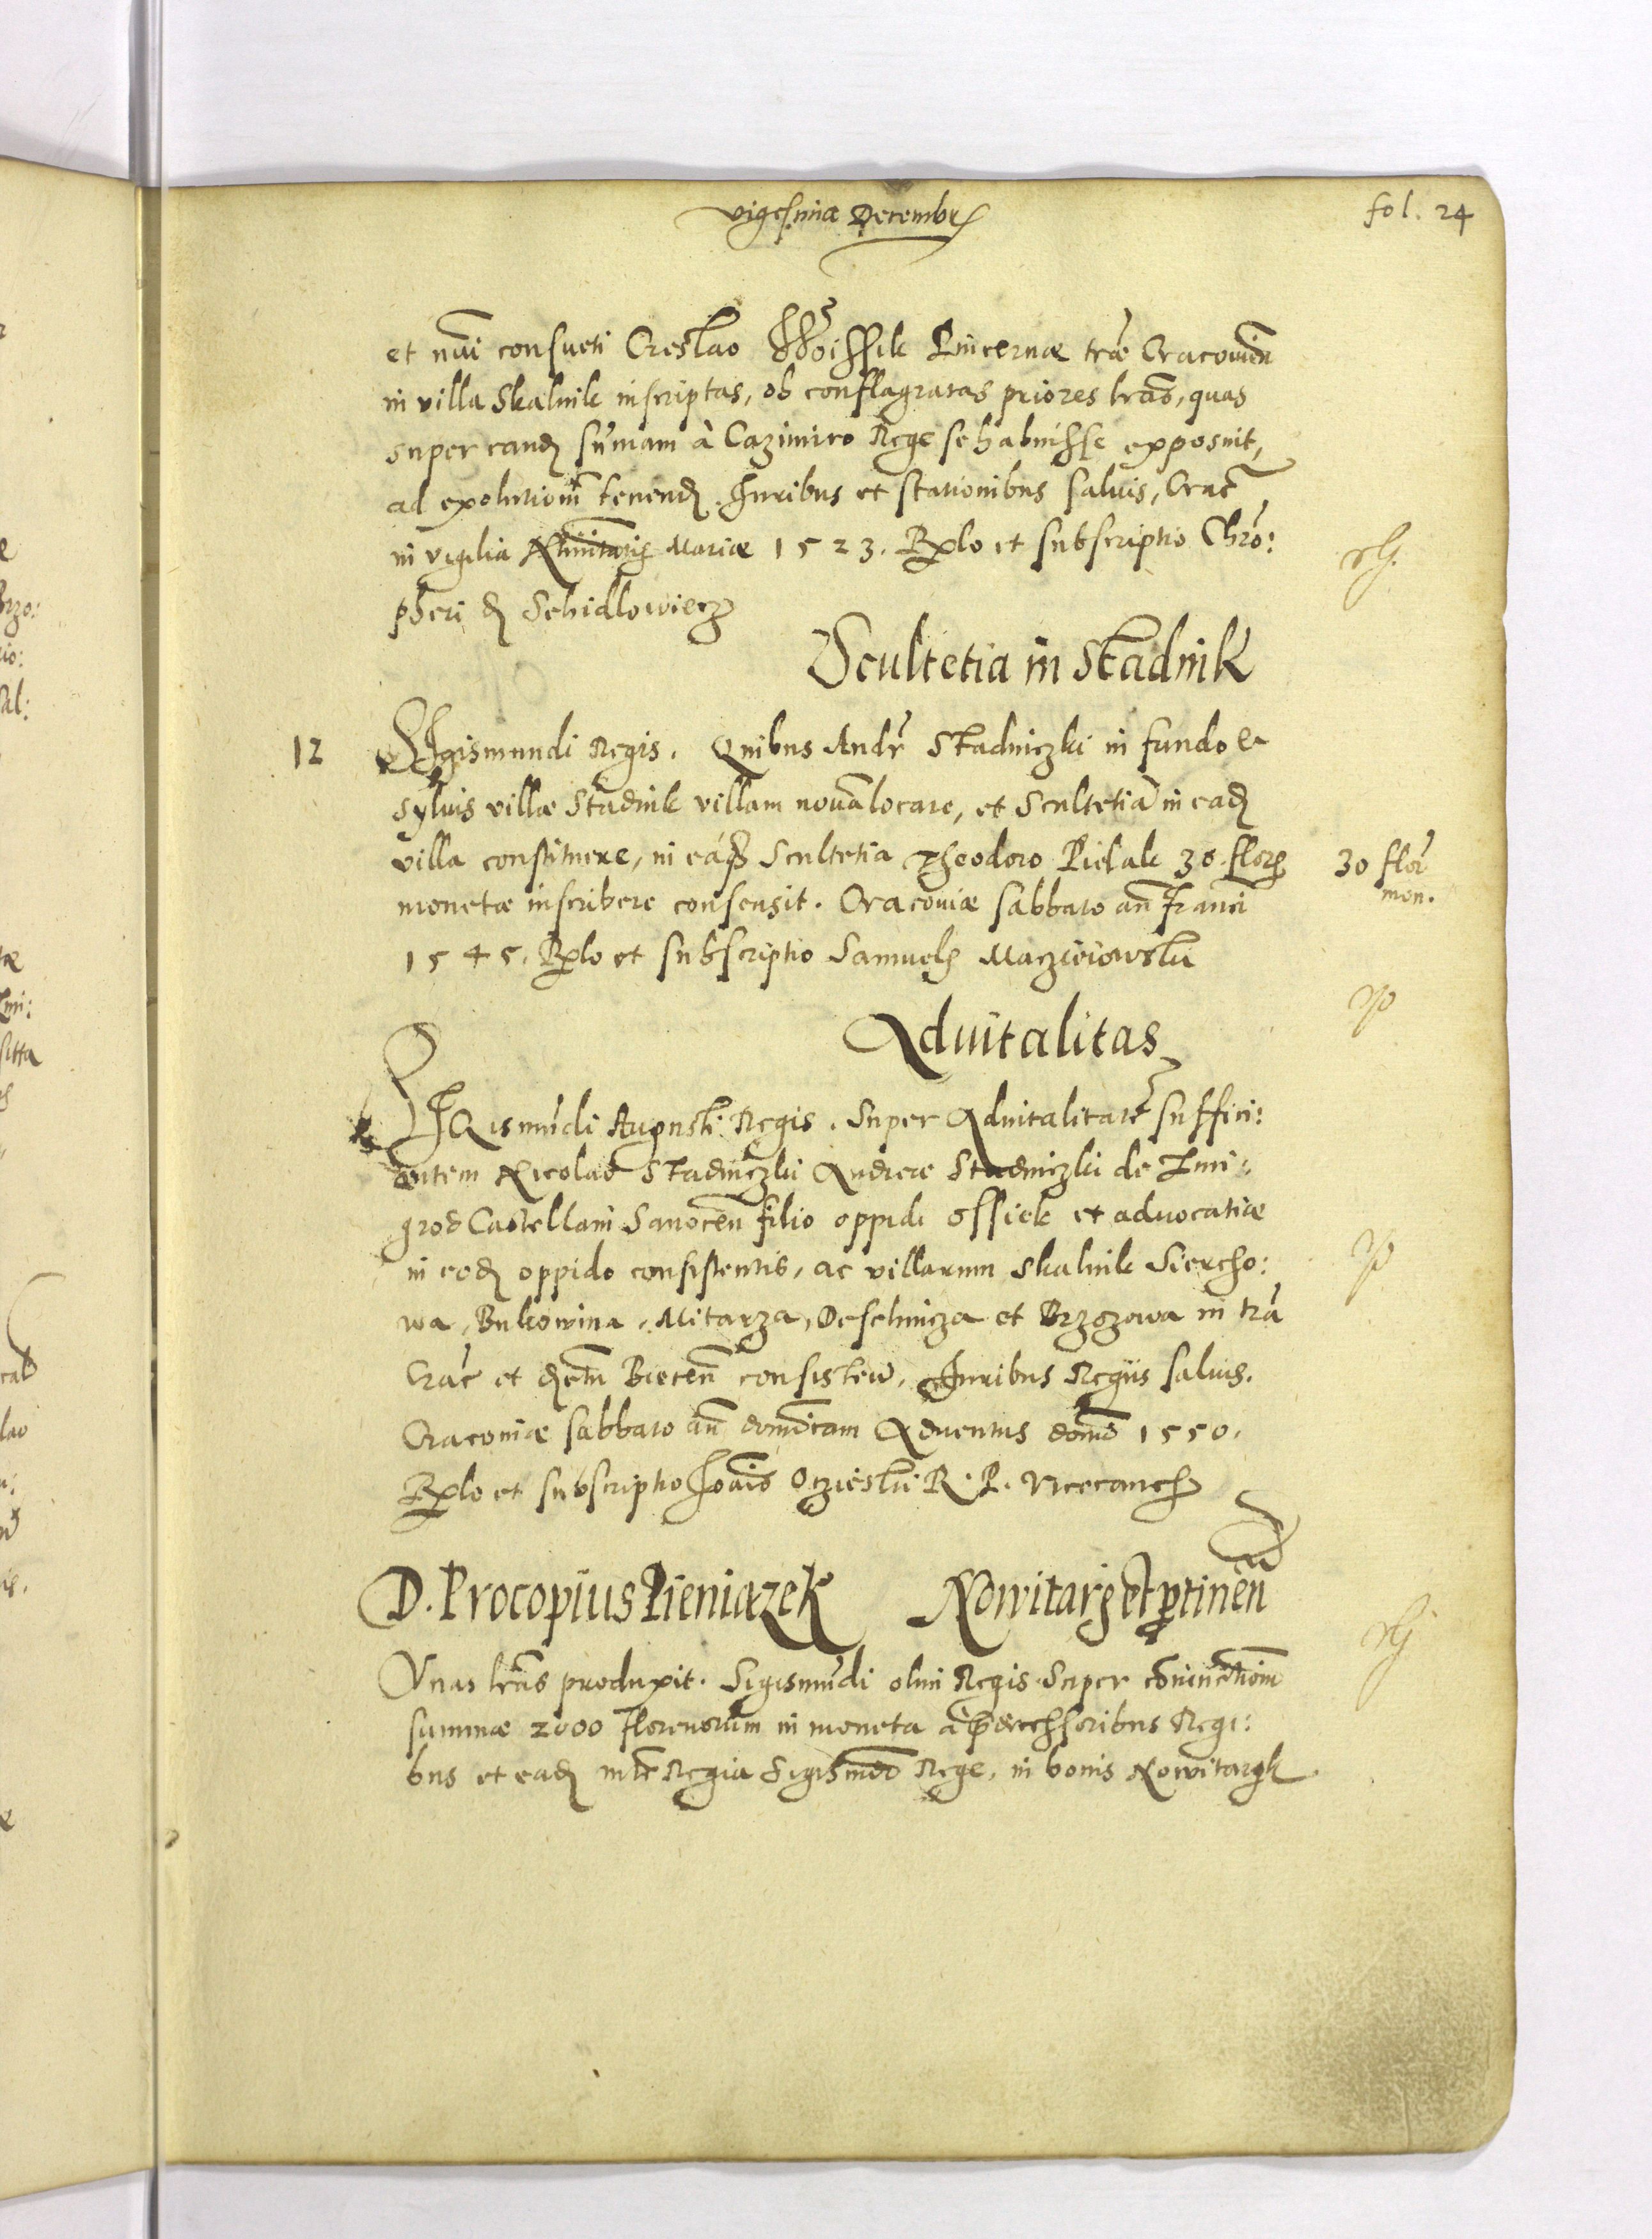 vigesima Decembr
fol. 24
et nūi consueti Creslao Woissik Pincernæ træ Cracovien
in villa Skalnik inscriptas, ob conflagratas priores lras, quas
super eand sūmam à Cazimiro Rege se habuisse exposuit,
ad exolutionē tenend. Iuribus et stationibus salvis, Crac
in vigilia Mariæ 1523. Rlo et subscriptio Chro:
pheri d Schidlowiecz
Scultetia in Stadnik
12 SIgismundi Regis. Quibus Andr Stadniczki in fundo et
sylvis villæ Stadnik villam novā locare, et Scultetiā in ead
villa constituere, in eaq Scultetia Theodoro Pielak 30 flor
30 flor
mon.
monetæ inscribere consensit. Cracoviæ sabbato an Franci
1545. Rlo et subscriptio Samuel Macziéiowski
Advitalitas
SIGismūdi Augusti Regis. Super Advitalitatē suffici:
entem Nicolao Stadniczki Andreæ Stadniczki de Zmi:
grod Castellani Sanocen filio oppidi Ossiek et advocatiæ
in eod oppido consistentis, ac villarum Skalnik Siercho:
wa, Bukowina, Mitarza, Deschnicza et Brzozowa in trā
Crac et Biecen consisten. Iuribus Regiis salvis.
Cracoviæ sabbato an domīcam Adventus domī 1550.
Rlo et subscriptio Joāis Oczieski R. P. Vicecanc
D. Procopius Pieniązek Nowitarg et ptinen
Unas lras produxit. Sigismūdi olim Regis. Super
summæ 2000 Florenorum in moneta à pdecessoribus Regi:
bus et ead mte Regia Sigismdo Rege, in bonis Nowitargk